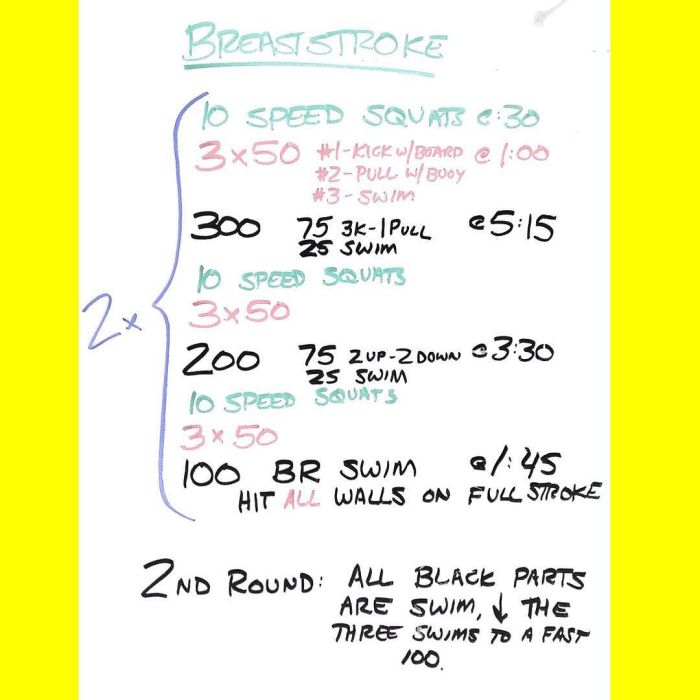 BREASTSTROKE
10 SPEED SQUATS @:30
3x50 #1-KICK W/BOARD @1:00
#2-PULL W/BUOY
#3-SWIM
300 75 3K-1PULL @5:15
25 SWIM
10 SPEED SQUATS
3x50
2x
200 75 2UP-2DOWN @3:30
25 SWIM
10 SPEED SQUATS
3x50
100 BR SWIM @1:45
HIT ALL WALLS ON FULL STROKE
2ND ROUND: ALL BLACK PARTS
ARE SWIM, ↓ THE
THREE SWIMS TO A FAST
100.